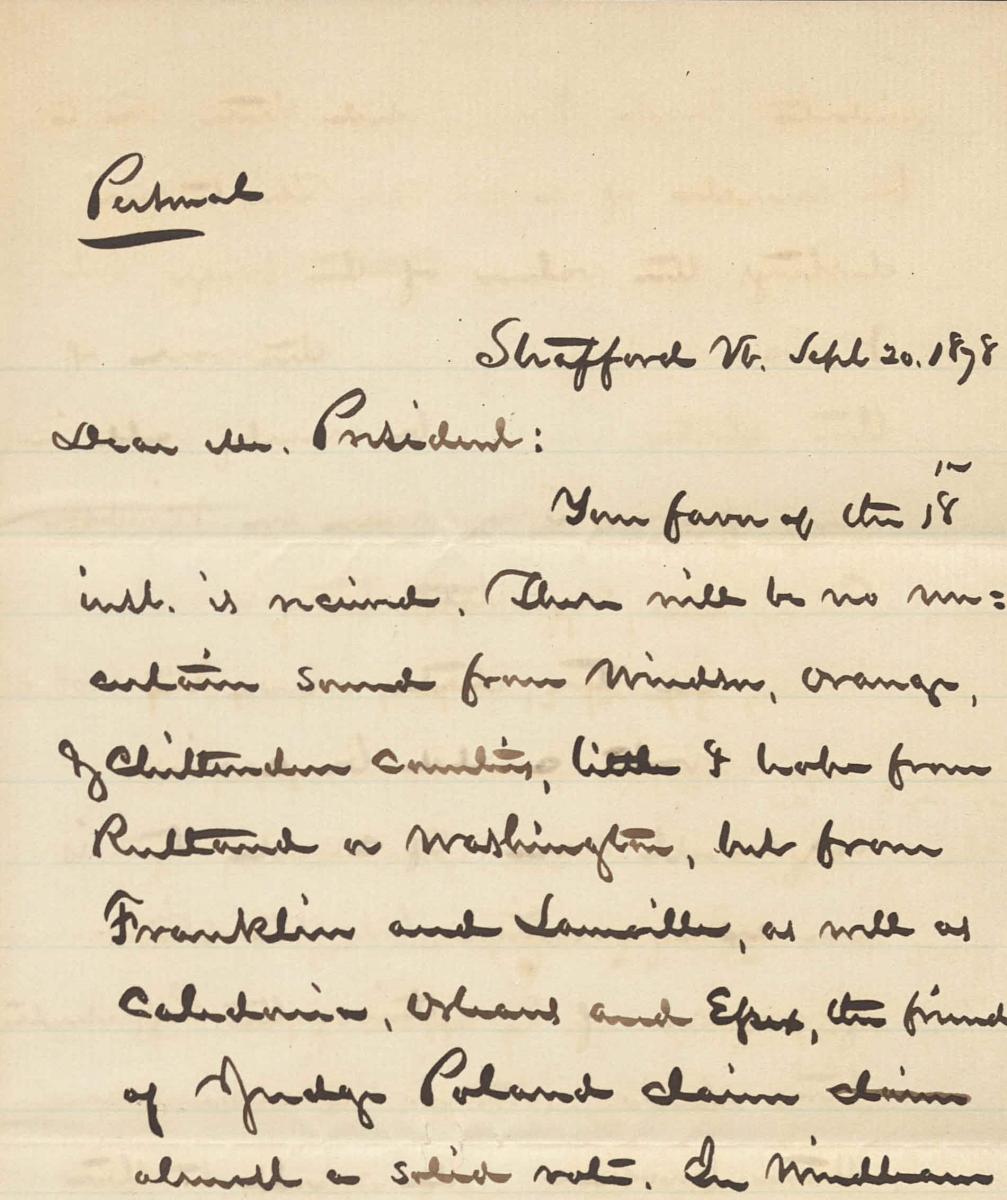 Personal
Strafford Vt. Sept 20. 1878
Dear Mr. President:
Your favor of the 18th
inst. is received. There will be no un=
certain sound from Windsor, Orange,
& Chittenden Counties, little I hope from
Rutland or Washington, but from
Franklin and Lamoille, as well as
Caledonia, Orleans and Essex, the friends
of Judge Poland claim claim
almost a solid vote. In Windham